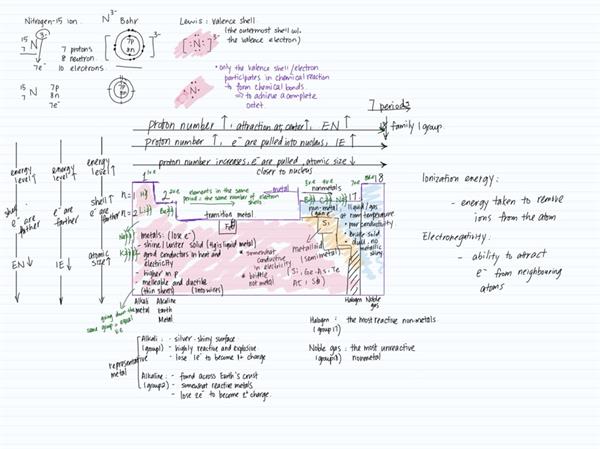 Nitrogen-15 ion
N3-
Bohr
Lewis: valence shell
(the outermost shell w/.
the valence electron)
15
7 N 3-
7 protons
8 neutron
10 electrons
7e-
[ 7p
8n ]3-
[ :N: ]3-
15
7 N
7p
8n
7e-
7p
8n
·N·
• only the valence shell/electron
participates in chemical reaction
→ to form chemical bonds
⇒ to achieve a complete
octet
7 periods
family/group
proton number ↑, attraction at center ↑, EN ↑
proton number ↑, e- are pulled into nucleus, IE ↑
proton number increases, e- are pulled, atomic size ↓
closer to nucleus
energy
level ↑
energy
level ↑
energy
level ↑
shell
e- are
farther
e- are
farther
shell ↑
e- are
farther
EN ↓
IE ↓
atomic
size ↑
1
2
17
18
n=1
n=2
H
Li
Be
Na
K
elements in the same
period = the same number of electron
shells
metal
nonmetals
B
C
N
non-metal
(gain e-)
transition metal
Fe
Si
metals: (lose e-)
- shine/luster solid (Hg is liquid metal)
- good conductors in heat and
electricity
- higher in p
- malleable and ductile
(thin sheets) (into wires)
• somewhat
conductive
in electricity
• brittle
not metal
metalloid
(semimetal)
(Si, Ge, As, Te
At, Sb)
• liquid/gas
at room temperature
• poor conductivity
• brittle solid
• dull, no
metallic
shiny
going down the
same group = equal
v.e
Alkali
Metal
Alkaline
Earth
Metal
Halogen
Noble
gas
representative
metal
Alkali: - silver-shiny surface
(group1) - highly reactive and explosive
- lose 1e- to become 1+ charge
Alkaline: - found across Earth's crust
(group2) - somewhat reactive metals
- lose 2e- to become 2+ charge.
Halogen: the most reactive non-metals
(group17)
Noble gas: the most unreactive
(group18) nonmetal
Ionization energy:
- energy taken to remove
ions from the atom
Electronegativity:
- ability to attract
e- from neighbouring
atoms